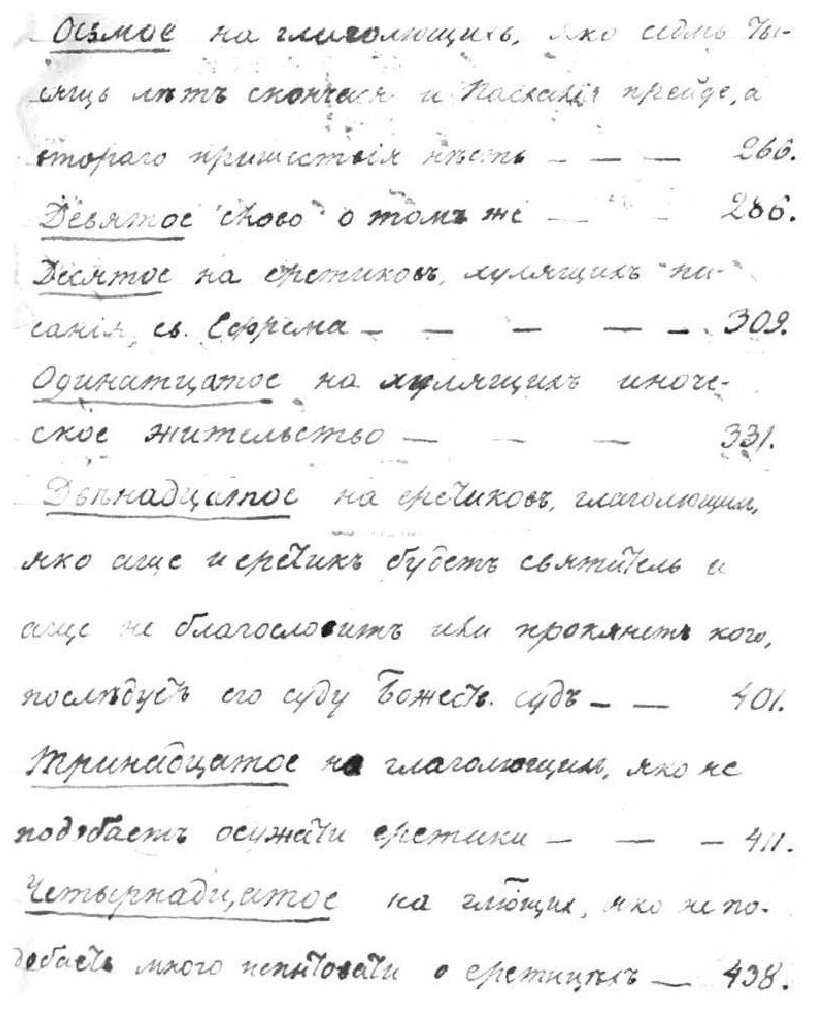 Осьмое на глаголющихъ, яко седмь ты-
сящь лѣтъ скончася и Пасхалія прейде, а
втораго пришествія нѣсть — — — 266.
Девятое слово о томъ же — — 286.
Десятое на еретиковъ, хулящихъ пи-
санія св. Ефрема — — — — — 309.
Одинатцатое на хулящихъ иноче-
ское жительство — — — 331.
Двѣнадцатое на еретиковъ, глаголющих,
яко аще и еретикъ будетъ святитель и
аще не благословитъ или проклянетъ кого,
послѣдуетъ его суду Божеств. судъ — — 401.
Тринадцатое на глаголющихъ, яко не
подобаетъ осужати еретики — — — 411.
Четырнадцатое на глющих, яко не по-
добаетъ много испытовати о еретицѣхъ — 438.